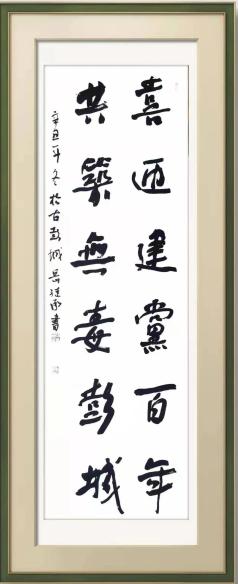 喜迎建黨百年
共築無毒彭城
辛丑年冬於古彭城
書